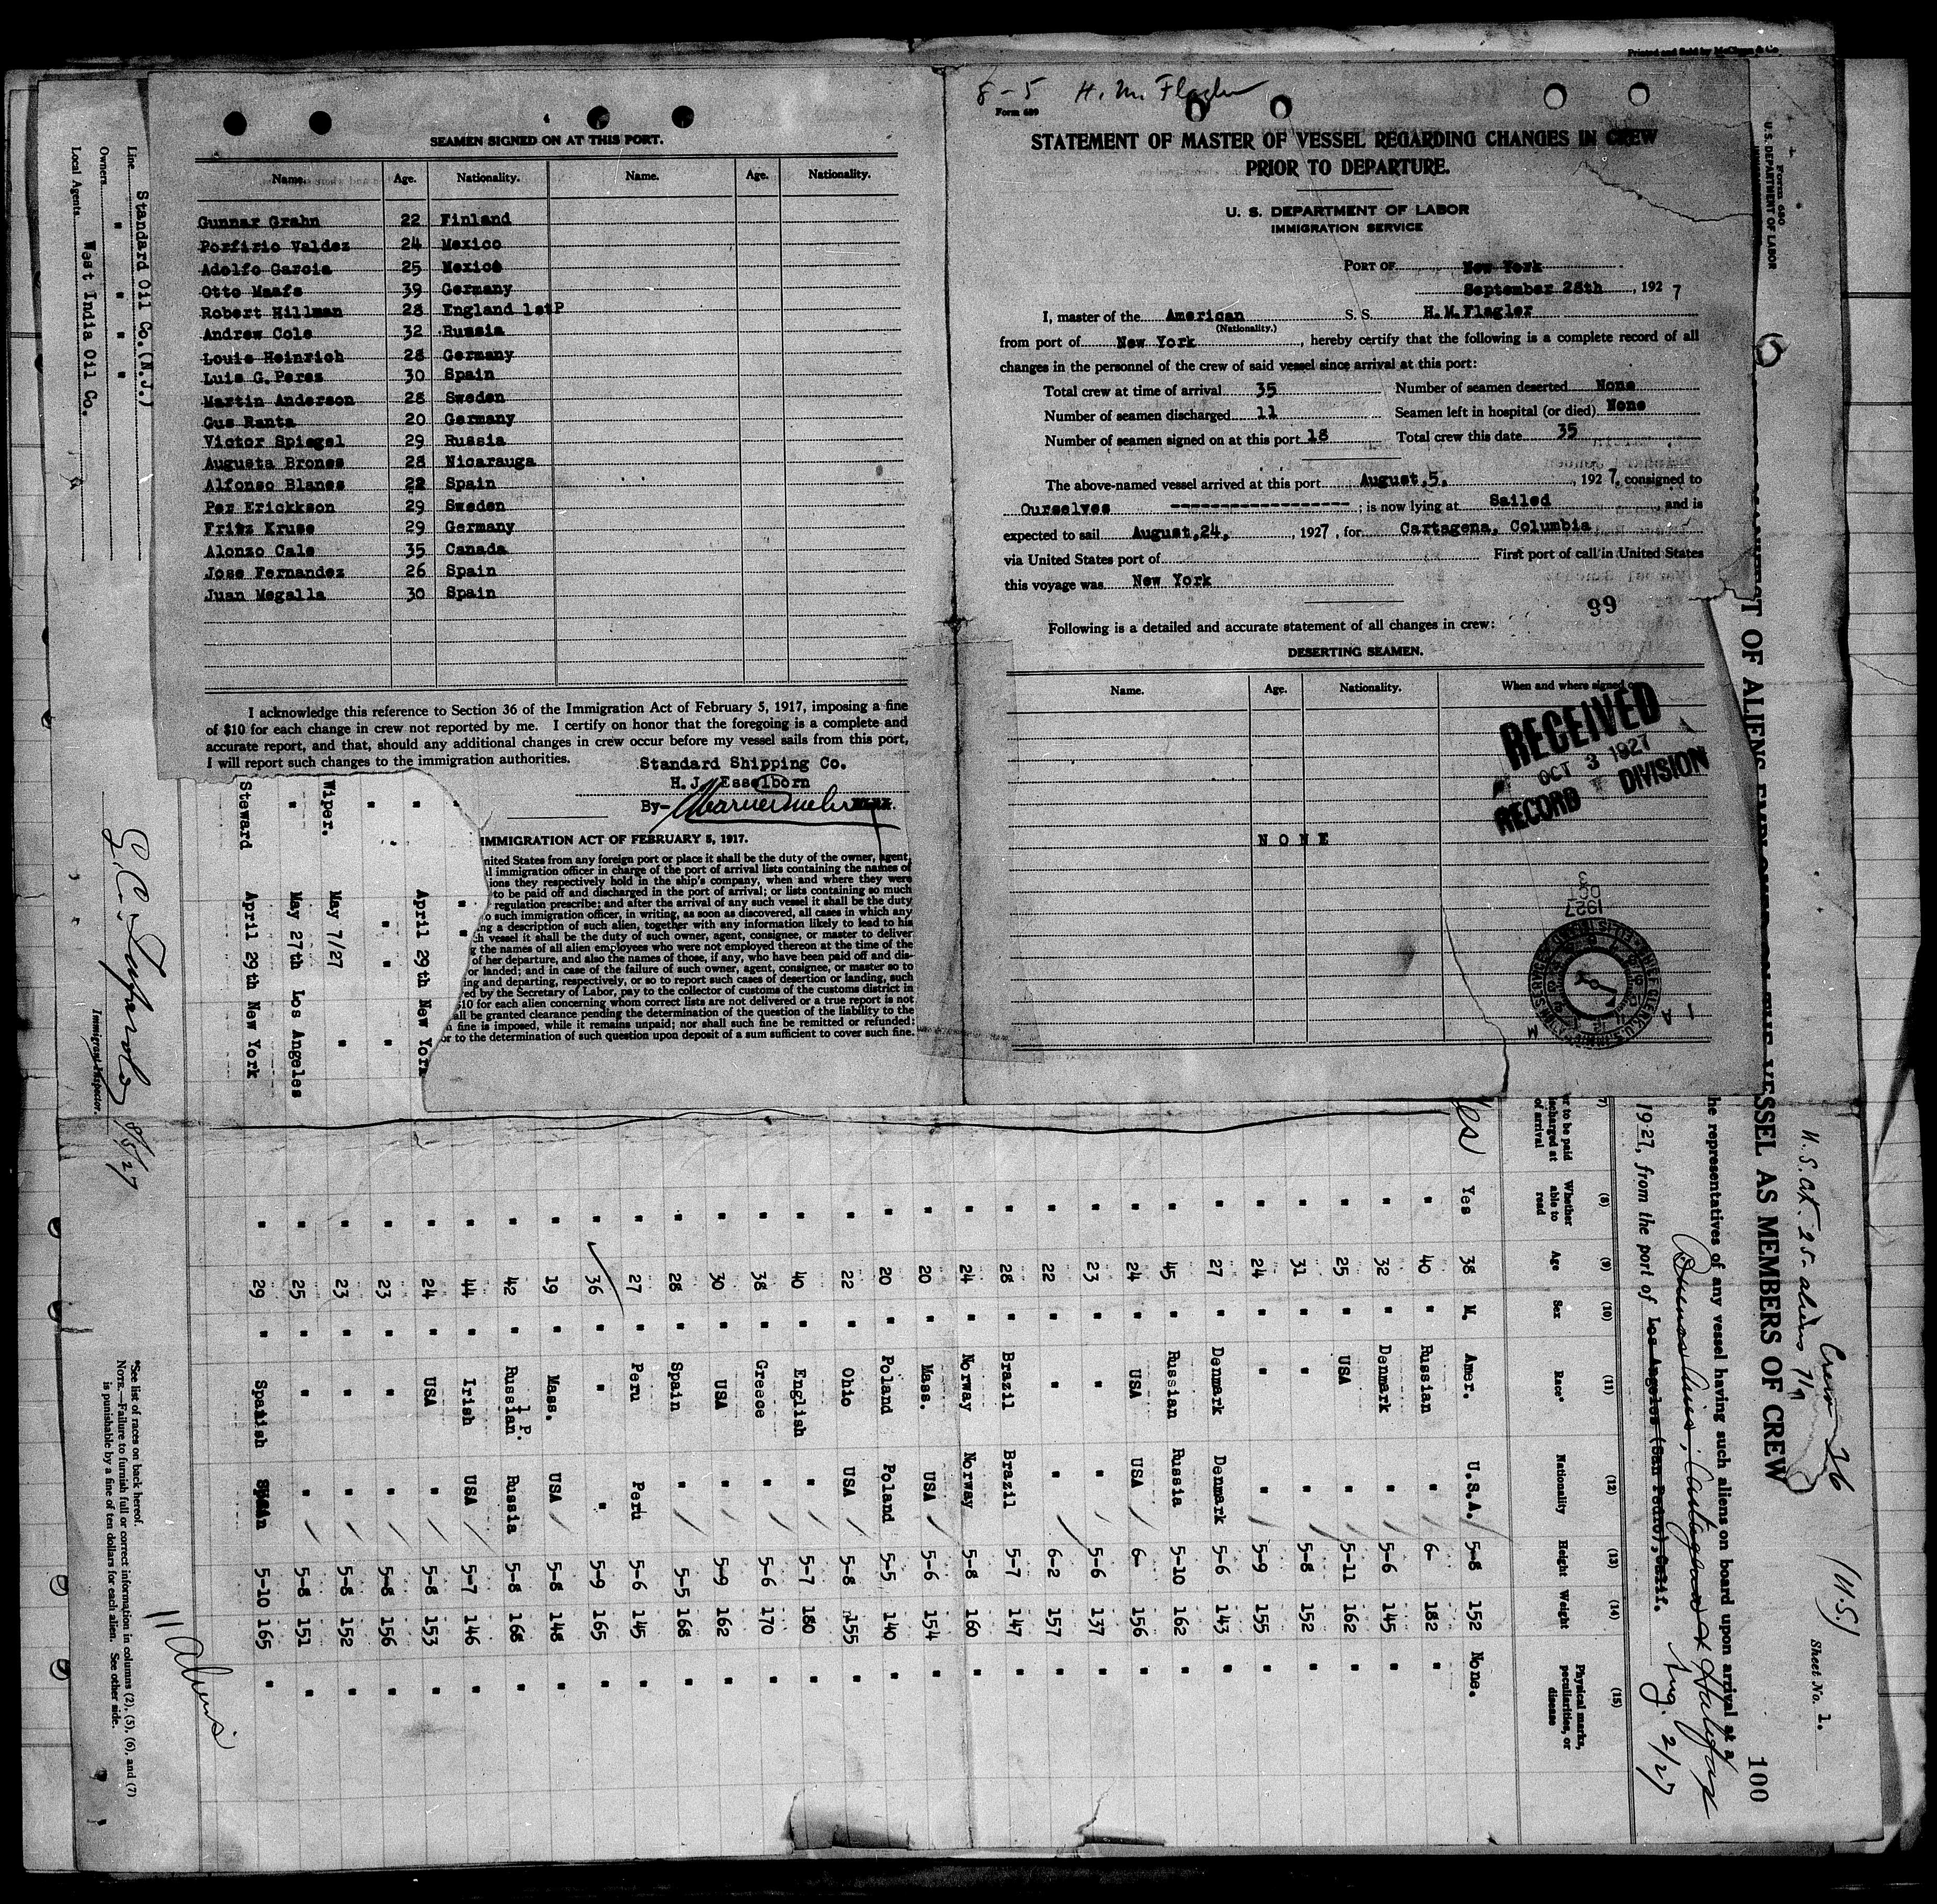 Printed and Sold by
SEAMEN SIGNED ON AT THIS PORT.
Name. Age. Nationality. Name. Age. Nationality.
Gunnar Grahn 22 Finland
Porfirio Valdez 24 Mexico
Adolfo Garcia 25 Mexico
Otto Maafs 39 Germany
Robert Hillman 28 England 1stP
Andrew Cole 32 Russia
Louis Heinrich 28 Germany
Luis G. Perez 30 Spain
Martin Anderson 28 Sweden
Gus Ranta 20 Germany
Victor Spiegel 29 Russia
Augusta Brones 28 Nicarauga
Alfonso Blanes 22 Spain
Per Erickkson 29 Sweden
Fritz Kruse 29 Germany
Alonzo Cale 35 Canada
Jose Fernandez 26 Spain
Juan Megalla 30 Spain
I acknowledge this reference to Section 36 of the Immigration Act of February 5, 1917, imposing a fine
of $10 for each change in crew not reported by me. I certify on honor that the foregoing is a complete and
accurate report, and that, should any additional changes in crew occur before my vessel sails from this port,
I will report such changes to the immigration authorities.
Standard Shipping Co.
H. J. Esselborn
By-
IMMIGRATION ACT OF FEBRUARY 5, 1917.
nited States from any foreign port or place it shall be the duty of the owner, agent,
l immigration officer in charge of the port of arrival lists containing the names of
ions they respectively hold in the ship's company, when and where they were
to be paid off and discharged in the port of arrival; or lists containing so much
regulation prescribe; and after the arrival of any such vessel it shall be the duty
o such immigration officer, in writing, as soon as discovered, all cases in which any
ng a description of such alien, together with any information likely to lead to his
h vessel it shall be the duty of such owner, agent, consignee, or master to deliver
g the names of all alien employees who were not employed thereon at the time of the
of her departure, and also the names of those, if any, who have been paid off and dis-
or landed; and in case of the failure of such owner, agent, consignee, or master so to
ing and departing, respectively, or so to report such cases of desertion or landing, such
ed by the Secretary of Labor, pay to the collector of customs of the customs district in
$10 for each alien concerning whom correct lists are not delivered or a true report is not
all be granted clearance pending the determination of the question of the liability to the
h fine is imposed, while it remains unpaid; nor shall such fine be remitted or refunded:
or to the determination of such question upon deposit of a sum sufficient to cover such fine.
8-5 H. M. Flagler
Form 689
STATEMENT OF MASTER OF VESSEL REGARDING CHANGES IN CREW
PRIOR TO DEPARTURE.
U. S. DEPARTMENT OF LABOR
IMMIGRATION SERVICE
PORT OF New York
September 28th, 1927
I, master of the American S. S. H.M.Flagler
(Nationality.)
from port of New York, hereby certify that the following is a complete record of all
changes in the personnel of the crew of said vessel since arrival at this port:
Total crew at time of arrival 35 Number of seamen deserted None
Number of seamen discharged 11 Seamen left in hospital (or died) None
Number of seamen signed on at this port 18 Total crew this date 35
The above-named vessel arrived at this port August,5, 1927, consigned to
Ourselves ------------------; is now lying at Sailed and is
expected to sail August,24, 1927, for Cartagena, Columbia
via United States port of First port of call in United States
this voyage was New York
99
Following is a detailed and accurate statement of all changes in crew:
DESERTING SEAMEN.
Name. Age. Nationality. When and where signed o
N O N E
RECEIVED
OCT 3 1927
RECORD DIVISION
OCT 3
1927
Form 680
U.S. DEPARTMENT OF LABOR
Crew 36 (U.S) Sheet No. 1.
U.S. cit. 25- aliens 11
OF ALIENS EMPLOYED ON THE VESSEL AS MEMBERS OF CREW 100
he representatives of any vessel having such aliens on board upon arrival at a
Buenos Aires, Cartagena & Halifax Aug. 2/27
1927, from the port of Los Angeles (San Pedro), Calif.
(7) (8) (9) (10) (11) (12) (13) (14) (15)
Whether able to read Age Sex Race* Nationality Height Weight Physical marks, peculiarities, or disease
Yes Yes 38 M. Amer. U.S.A. 5-8 152 None.
" 40 " Russian " 6- 182 "
" 32 " Denmark " 5-6 145 "
" 25 " USA " 5-11 162 "
" 31 " " " 5-8 152 "
" 24 " " " 5-9 155 "
" 27 " Denmark Denmark 5-6 143 "
" 45 " Russian Russia 5-10 162 "
" 24 " USA USA 6- 156 "
" 23 " " " 5-6 137 "
" 22 " " " 6-2 157 "
" 28 " Brazil Brazil 5-7 147 "
" 24 " Norway Norway 5-8 160 "
" 20 " Mass. USA 5-6 154 "
" 20 " Poland Poland 5-5 140 "
" 22 " Ohio USA 5-8 155 "
" 40 " English " 5-7 180 "
" 38 " Greece " 5-6 170 "
" 30 " USA " 5-9 162 "
" 28 " Spain " 5-5 168 "
" 27 " Peru Peru 5-6 145 "
" 36 " " " 5-9 165 "
" 19 " Mass. USA 5-8 148 "
" 42 " Russian 1 P. Russia 5-8 168 "
" 44 " Irish USA 5-7 146 "
April 29th New York " 24 " USA " 5-8 153 "
" " " 23 " " " 5-8 156 "
Wiper. May 7/27 " " 23 " " " 5-8 152 "
" May 27th Los Angeles " 25 " " " 5-8 151 "
Steward April 29th New York " 29 " Spanish Spain 5-10 165 "
11 Aliens
Line Standard Oil Co.(N.J.)
Owners " " " "
Local Agents West India Oil Co.
8/5/27
Immigrant Inspector.
*See list of races on back hereof.
NOTE.—Failure to furnish full or correct information in columns (2), (5), (6), and (7)
is punishable by a fine of ten dollars for each alien. See other side.